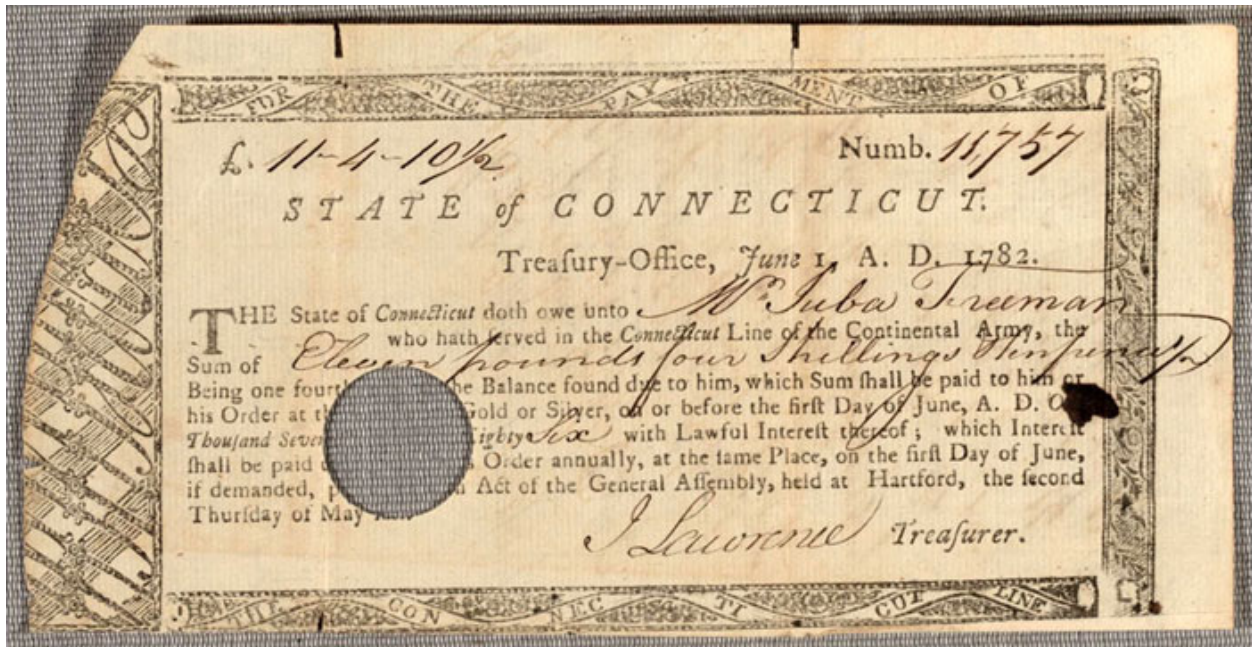 FOR THE PAY MENT OF
£. 11-4-10½ Numb. 11,757
STATE of CONNECTICUT.
Treaſury-Office, June 1, A. D. 1782.
THE State of Connecticut doth owe unto Mr Juba Freeman
who hath ſerved in the Connecticut Line of the Continental Army, the
Sum of Eleven pounds four Shillings & tenpence ½
Being one fourth the Balance found due to him, which Sum ſhall be paid to him or
his Order at Gold or Silver, on or before the firſt Day of June, A. D.
Thouſand Eighty Six with Lawful Intereſt thereof; which Intereſt
ſhall be paid Order annually, at the ſame Place, on the firſt Day of June,
if demanded, Act of the General Aſſembly, held at Hartford, the ſecond
Thurſday of May
J Lawrence Treaſurer.
THE CON NEC TI CUT LINE